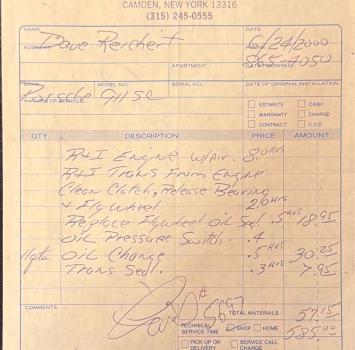 CAMDEN, NEW YORK 13316
(315) 245-0555
NAME DATE
Dave Reichert 6/24/2000
ADDRESS 865-4050
APARTMENT DATE PROMISED
MAKE MODEL NO. SERIAL NO. DATE OF ORIGINAL INSTALLATION
Porsche 911 SC
NATURE OF SERVICE
ESTIMATE CASH
WARRANTY CHARGE
CONTRACT C.O.D.
QTY. DESCRIPTION PRICE AMOUNT
R+I Engine w/Air. 8.0 HRS
R+I Trans From Engine
Clean Clutch, Release Bearing
+ Flywheel 2.0 HRS
Replace Flywheel Oil Seal .5 HRS 18.95
Oil Pressure Switch .4
11qts Oil Change .5 HRS 30.25
Trans Seal. .3 HRS 7.95
COMMENTS
Paid # 5697
TOTAL MATERIALS 57.15
TECHNICAL SERVICE TIME SHOP HOME 585.00
PICK UP OR DELIVERY SERVICE CALL CHARGE